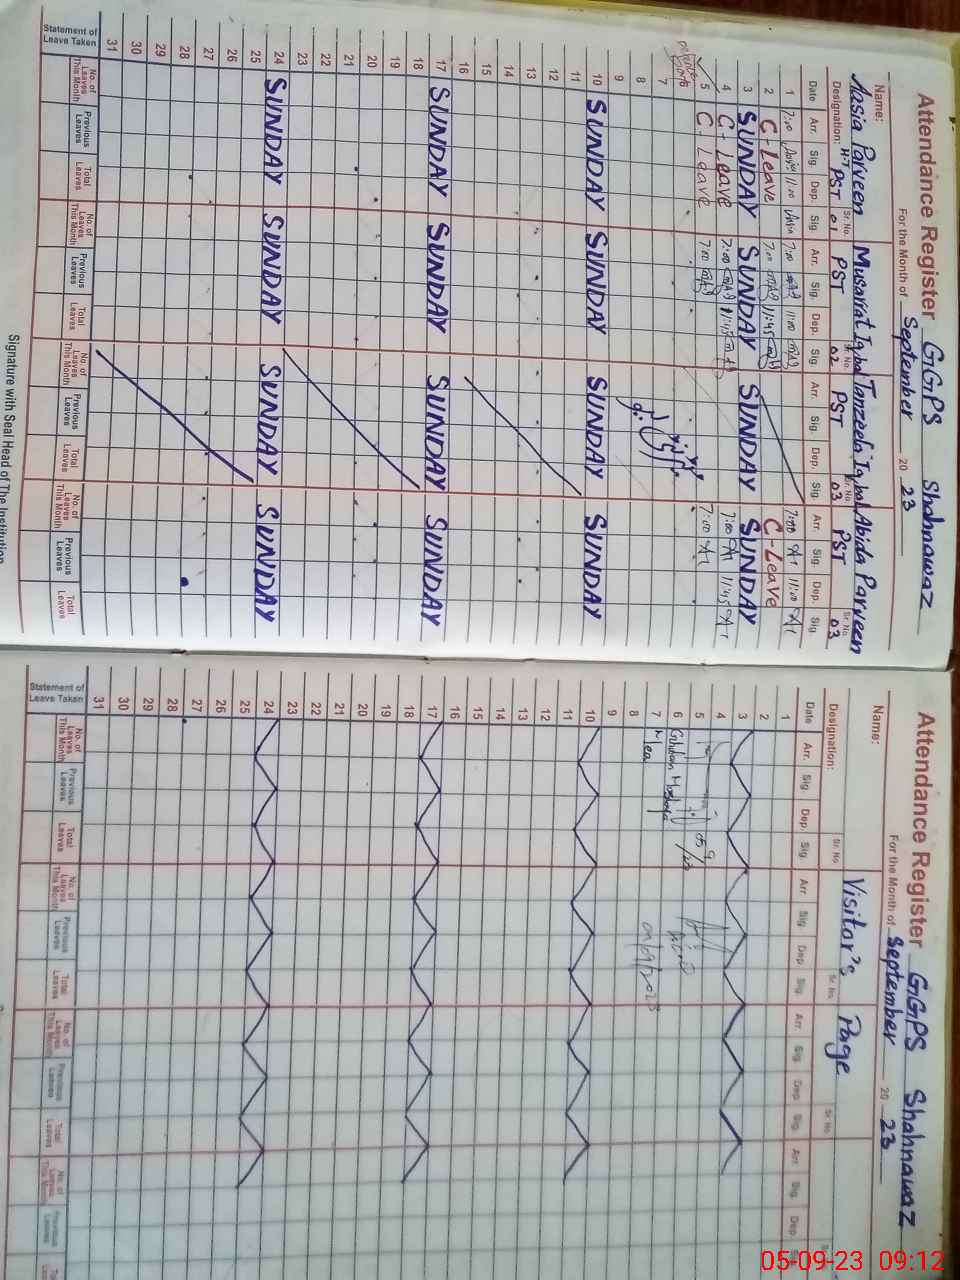 Attendance Register GGPS Shahnawaz
For the Month of September 20 23
Name: Aasia Parveen Musarrat Iqbal Tanzeela Iqbal Abida Parveen
Designation: H.T PST Sr. No. 01 PST Sr. No. 02 PST Sr. No. 03 PST Sr. No. 03
Date Arr. Sig. Dep. Sig. Arr. Sig. Dep. Sig. Arr. Sig. Dep. Sig. Arr. Sig. Dep. Sig.
1 7:00 11:00 7:00 11:00 7:00 11:00
2 C-Leave 7:00 11:45 C-Leave
3 SUNDAY SUNDAY SUNDAY SUNDAY
4 C-Leave 7:00 11:45 7:00 11:45
5 C-Leave 7:00 7:00
6
7
8
9
10 SUNDAY SUNDAY SUNDAY SUNDAY
11
12
13
14
15
16
17 SUNDAY SUNDAY SUNDAY SUNDAY
18
19
20
21
22
23
24 SUNDAY SUNDAY SUNDAY SUNDAY
25
26
27
28
29
30
31
Statement of Leave Taken
No. of Leaves This Month Previous Leaves Total Leaves No. of Leaves This Month Previous Leaves Total Leaves No. of Leaves This Month Previous Leaves Total Leaves No. of Leaves This Month Previous Leaves Total Leaves
Signature with Seal Head of The Institution
Attendance Register GGPS Shahnawaz
For the Month of September 20 23
Name: Visitor's Page
Designation: Sr. No. Sr. No. Sr. No.
Date Arr. Sig. Dep. Sig. Arr. Sig. Dep. Sig. Arr. Sig. Dep. Sig. Arr. Sig. Dep.
1
2
3
4
5
6
7
8
9
10
11
12
13
14
15
16
17
18
19
20
21
22
23
24
25
26
27
28
29
30
31
Statement of Leave Taken
No. of Leaves This Month Previous Leaves Total Leaves No. of Leaves This Month Previous Leaves Total Leaves No. of Leaves This Month Previous Leaves Total Leaves No. of Leaves This Month Previous Leaves Total
05-09-23 09:12